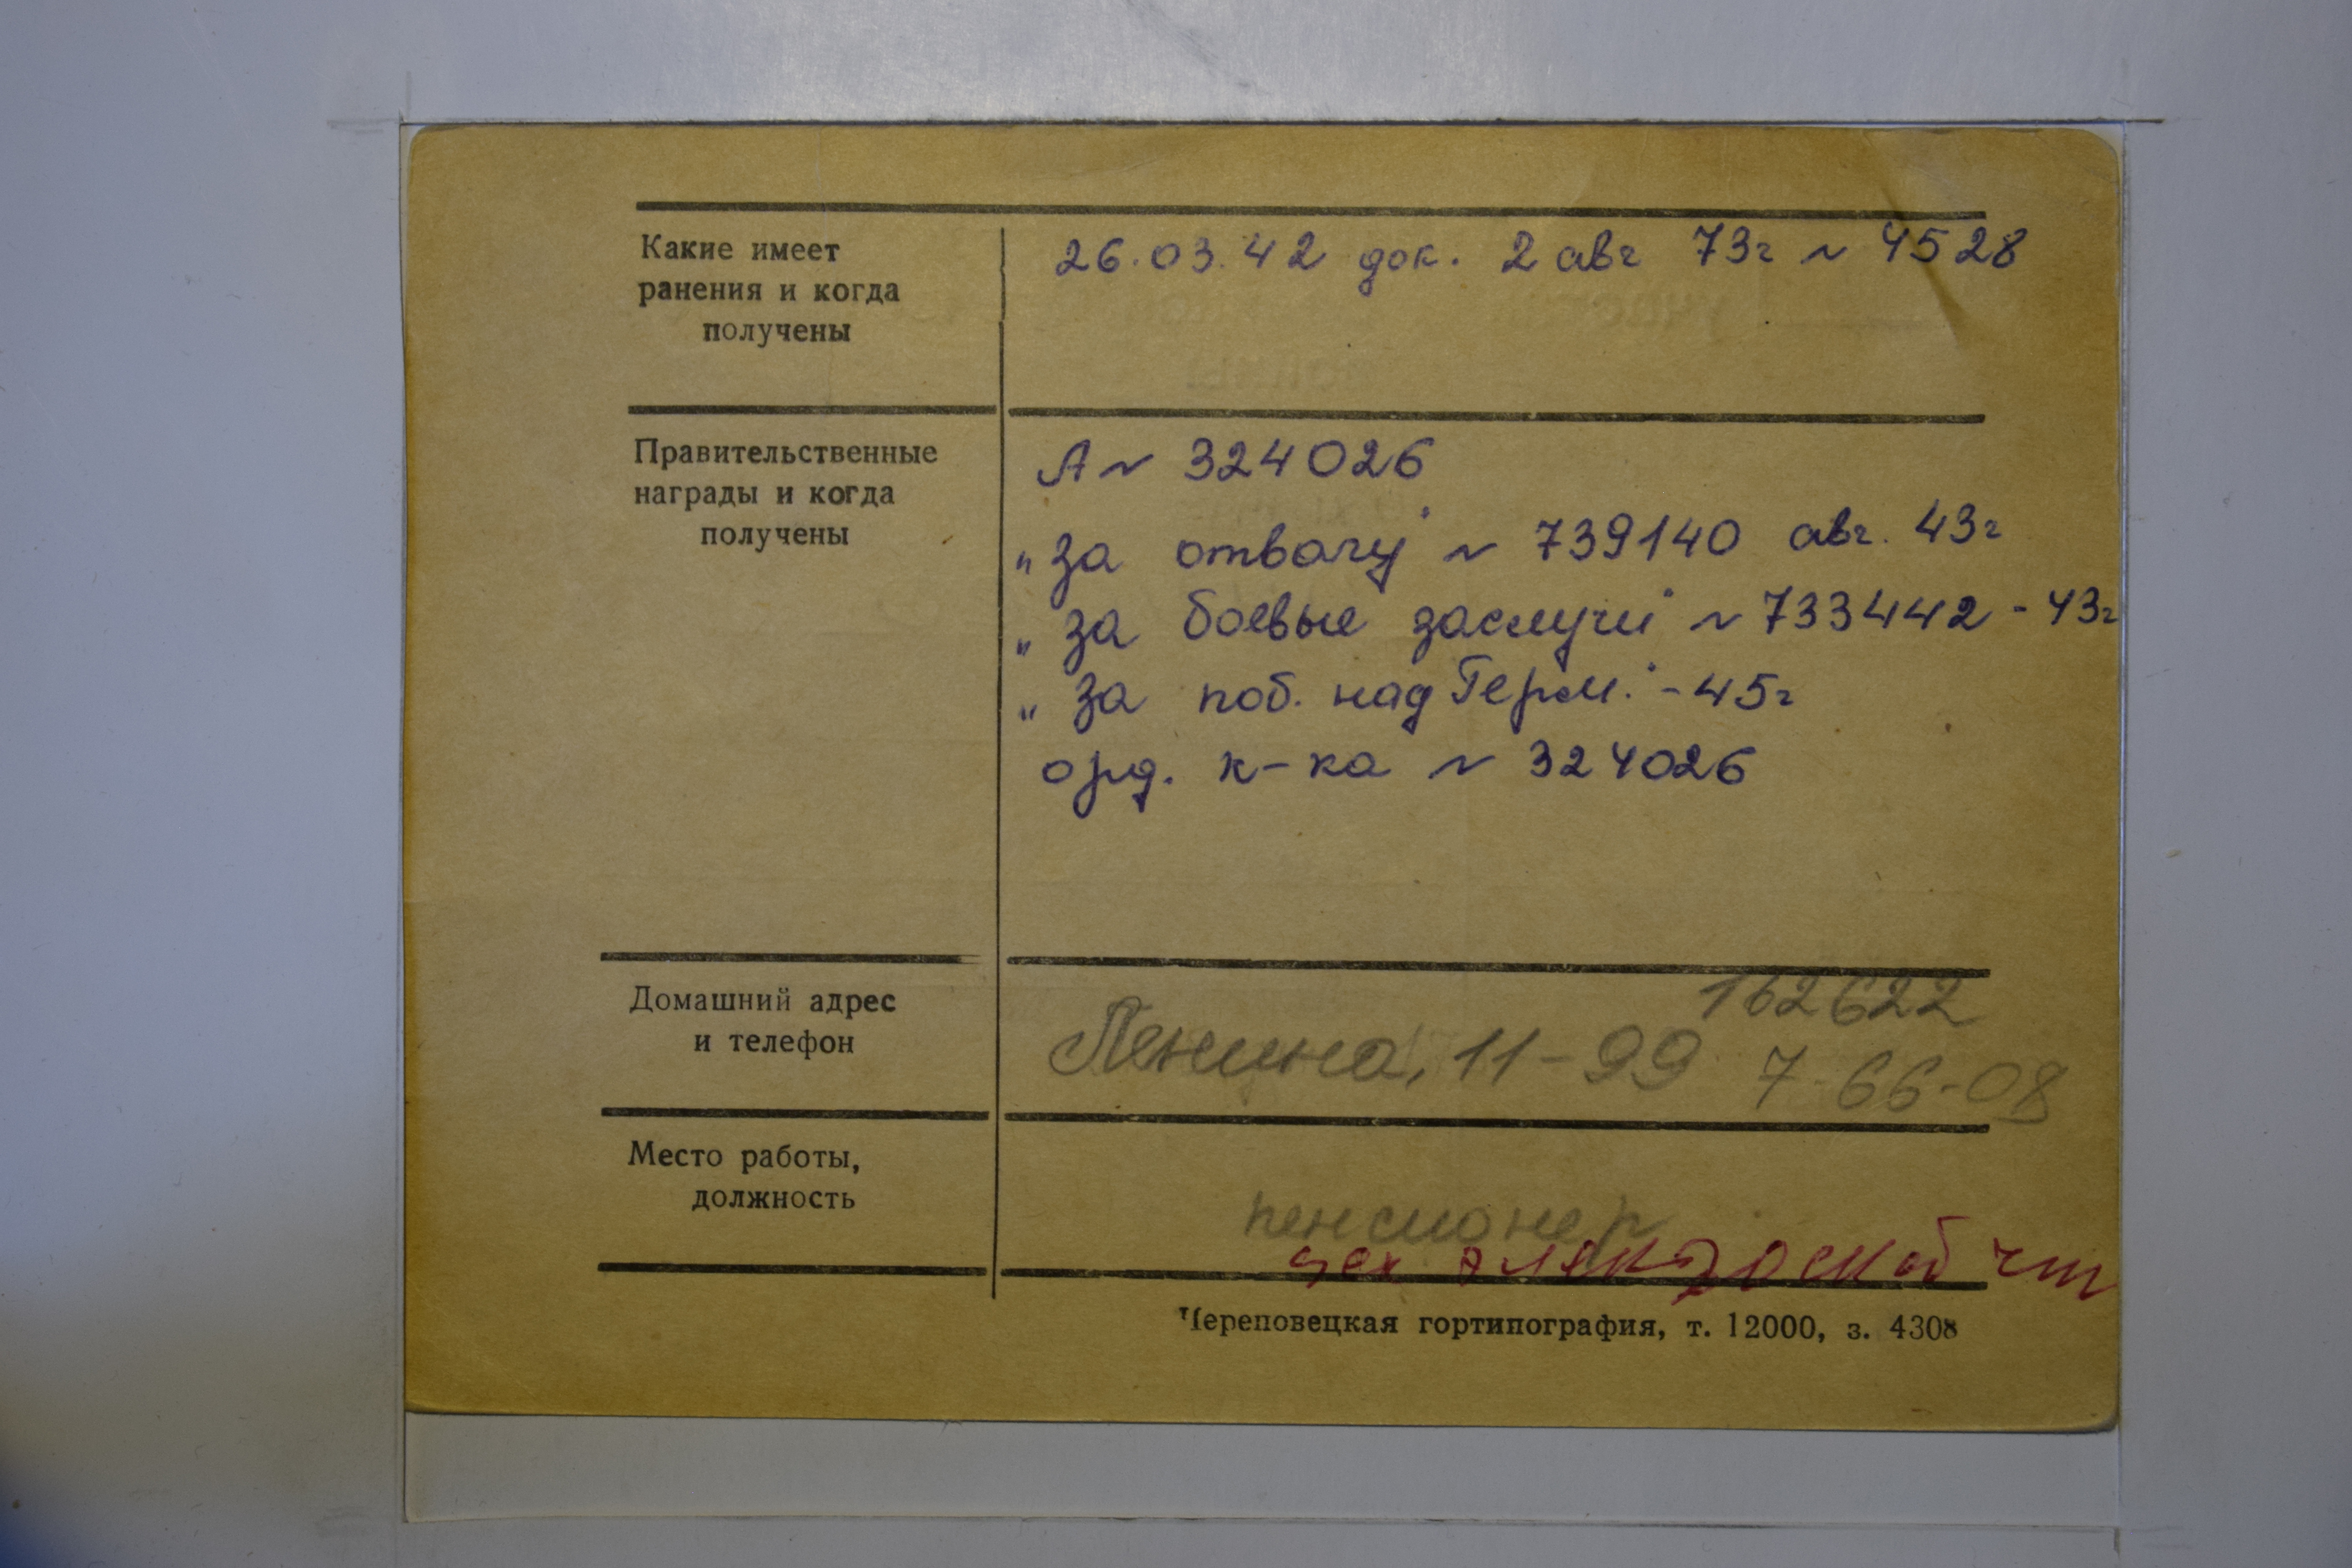 Какие имеет
ранения и когда
получены
26.03.42 док. 2 авг 73г N 4528
Правительственные
награды и когда
получены
А N 324026
„За отвагу" N 739140 авг. 43г
„За боевые заслуги" N 733442 - 43г
„За поб. над Герм." - 45г
орд. к-ка N 324026
Домашний адрес
и телефон
162622
Ленина, 11-99 7-66-08
Место работы,
должность
пенсионер
цех
Череповецкая гортипография, т. 12000, з. 4308